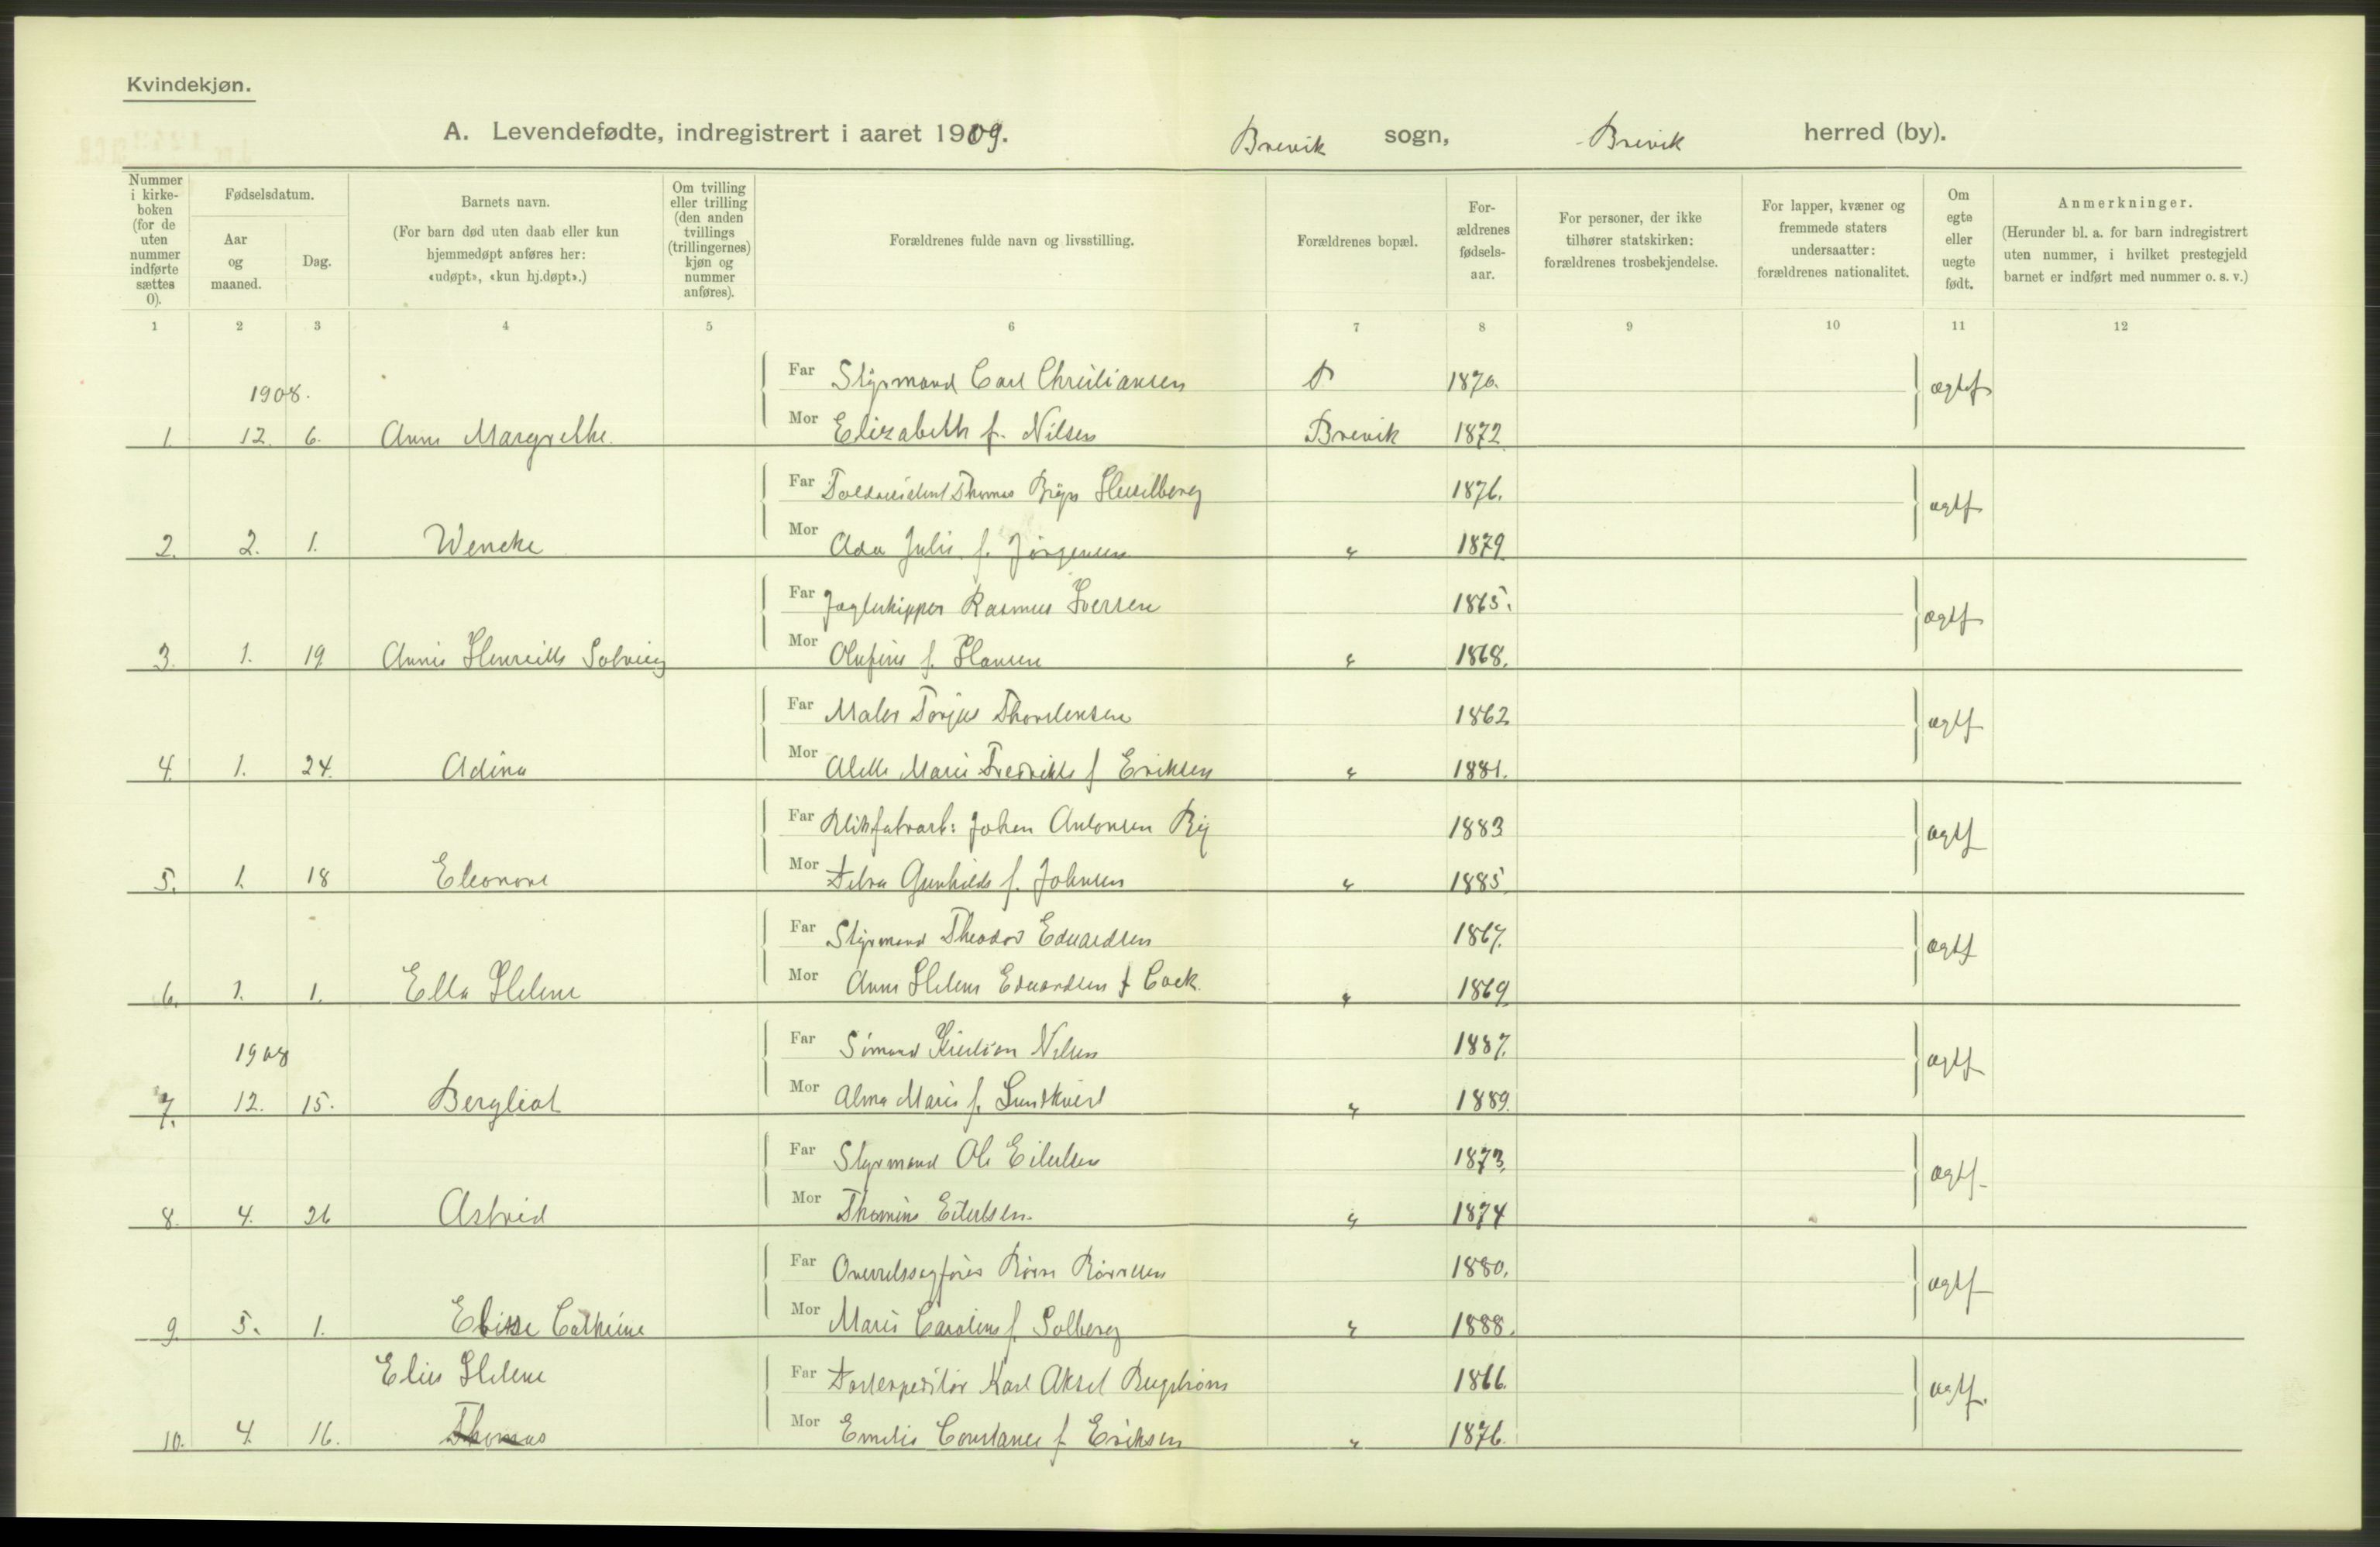 Kvindekjøn.
A. Levendefødte, indregistrert i aaret 1909. Brevik sogn, Brevik herred (by).
Nummer i kirkeboken (for de uten nummer indførte sættes 0).
Fødselsdatum.
Aar og maaned.
Dag.
Barnets navn.
(For barn død uten daab eller kun hjemmedøpt anføres her: «udøpt», «kun hj.døpt».)
Om tvilling eller trilling (den anden tvillings (trillingernes) kjøn og nummer anføres).
Forældrenes fulde navn og livsstilling.
Forældrenes bopæl.
For-ældrenes fødsels-aar.
For personer, der ikke tilhører statskirken: forældrenes trosbekjendelse.
For lapper, kvæner og fremmede staters undersaatter: forældrenes nationalitet.
Om egte eller uegte født.
Anmerkninger.
(Herunder bl. a. for barn indregistrert uten nummer, i hvilket prestegjeld barnet er indført med nummer o. s. v.)
1 2 3 4 5 6 7 8 9 10 11 12
1908.
Far Styrmand Carl Christiansen 1870. ægtef
1. 12. 6. Anna Margrethe. Mor Elizabeth f. Nilsen Brevik 1872
Far Thomas 1876. ægtf
2. 2. 1. Wencke Mor Ada Julie f. Jörgensen " 1879
Far Jagtskipper Rasmus Iversen 1865. ægtf
3. 1. 19 Annie Henriette Solveig Mor Olufine f. Hansen " 1868.
Far Maler Torjus 1862 ægtf
4. 1. 24. Adina Mor Alette Marie Fredrikke f Eriksen " 1881.
Far Johan Antonsen 1883 ægtf
5. 1. 18 Eleonore Mor Gunhilde f. Johnsen " 1885
Far Styrmand Theodor Eduardsen 1867. ægtf
6. 1. 1. Ella Helene Mor Anna Helene Eduardsen f Cock. " 1869
1908
Far Sömand Kristian Nilsen 1887. ægtf
7. 12. 15. Bergliot Mor Alma Marie f. " 1889.
Far Styrmand Ole Eilertsen 1873. ægtf.
8. 4. 26 Astrid Mor Thomine Eilertsen. " 1874
Far Overretssagförer 1880. ægtf
9. 5. 1. Elisse Cathrine Mor Marie Caroline f. Solberg " 1888.
Elise Helene
Far Karl Aksel 1866. ægtf.
10. 4. 16. Thomas Mor Emilie Constance f Eriksen " 1876.